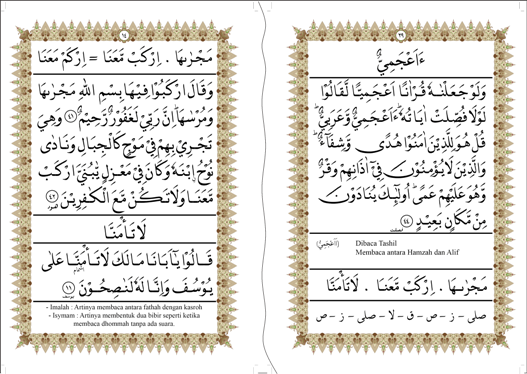 ٢٩
ءَاَعْجَمِيٌّ
وَلَوْ جَعَلْنٰهُ قُرْاٰنًا اَعْجَمِيًّا لَّقَالُوْا
لَوْلَا فُصِّلَتْ اٰيَاتُهٗ ءَاَعْجَمِيٌّ وَّعَرَبِيٌّ
قُلْ هُوَ لِلَّذِيْنَ اٰمَنُوْا هُدًى وَّشِفَاۤءٌ
وَالَّذِيْنَ لَا يُؤْمِنُوْنَ فِيْٓ اٰذَانِهِمْ وَقْرٌ
وَّهُوَ عَلَيْهِمْ عَمًى اُولٰٓئِكَ يُنَادَوْنَ
مِنْ مَّكَانٍ بَعِيْدٍ ٤٤
(ءَاَعْجَمِيٌّ) Dibaca Tashil
Membaca antara Hamzah dan Alif
مَجْرٰىهَا . اِرْكَبْ مَّعَنَا . لَاتَأْمَنَّا
صلى – ز – ص – ق – لا – صلى – ز – ص
مَجْرٰىهَا . اِرْكَبْ مَّعَنَا = اِرْكَمْ مَعَنَا
وَقَالَ ارْكَبُوْا فِيْهَا بِسْمِ اللهِ مَجْرٰىهَا
وَمُرْسٰىهَا اِنَّ رَبِّيْ لَغَفُوْرٌ رَّحِيْمٌ ٤١ وَهِيَ
تَجْرِيْ بِهِمْ فِيْ مَوْجٍ كَالْجِبَالِ وَنَادٰى
نُوْحُ ۨابْنَهٗ وَكَانَ فِيْ مَعْزِلٍ يّٰبُنَيَّ ارْكَبْ
مَّعَنَا وَلَا تَكُنْ مَّعَ الْكٰفِرِيْنَ ٤٢
لَاتَأْمَنَّا
قَالُوْا يٰٓاَبَانَا مَالَكَ لَا تَأْمَنَّا عَلٰى
يُوْسُفَ وَاِنَّا لَهٗ لَنٰصِحُوْنَ ١١
- Imalah : Artinya membaca antara fathah dengan kasroh
- Isymam : Artinya membentuk dua bibir seperti ketika
membaca dhommah tanpa ada suara.